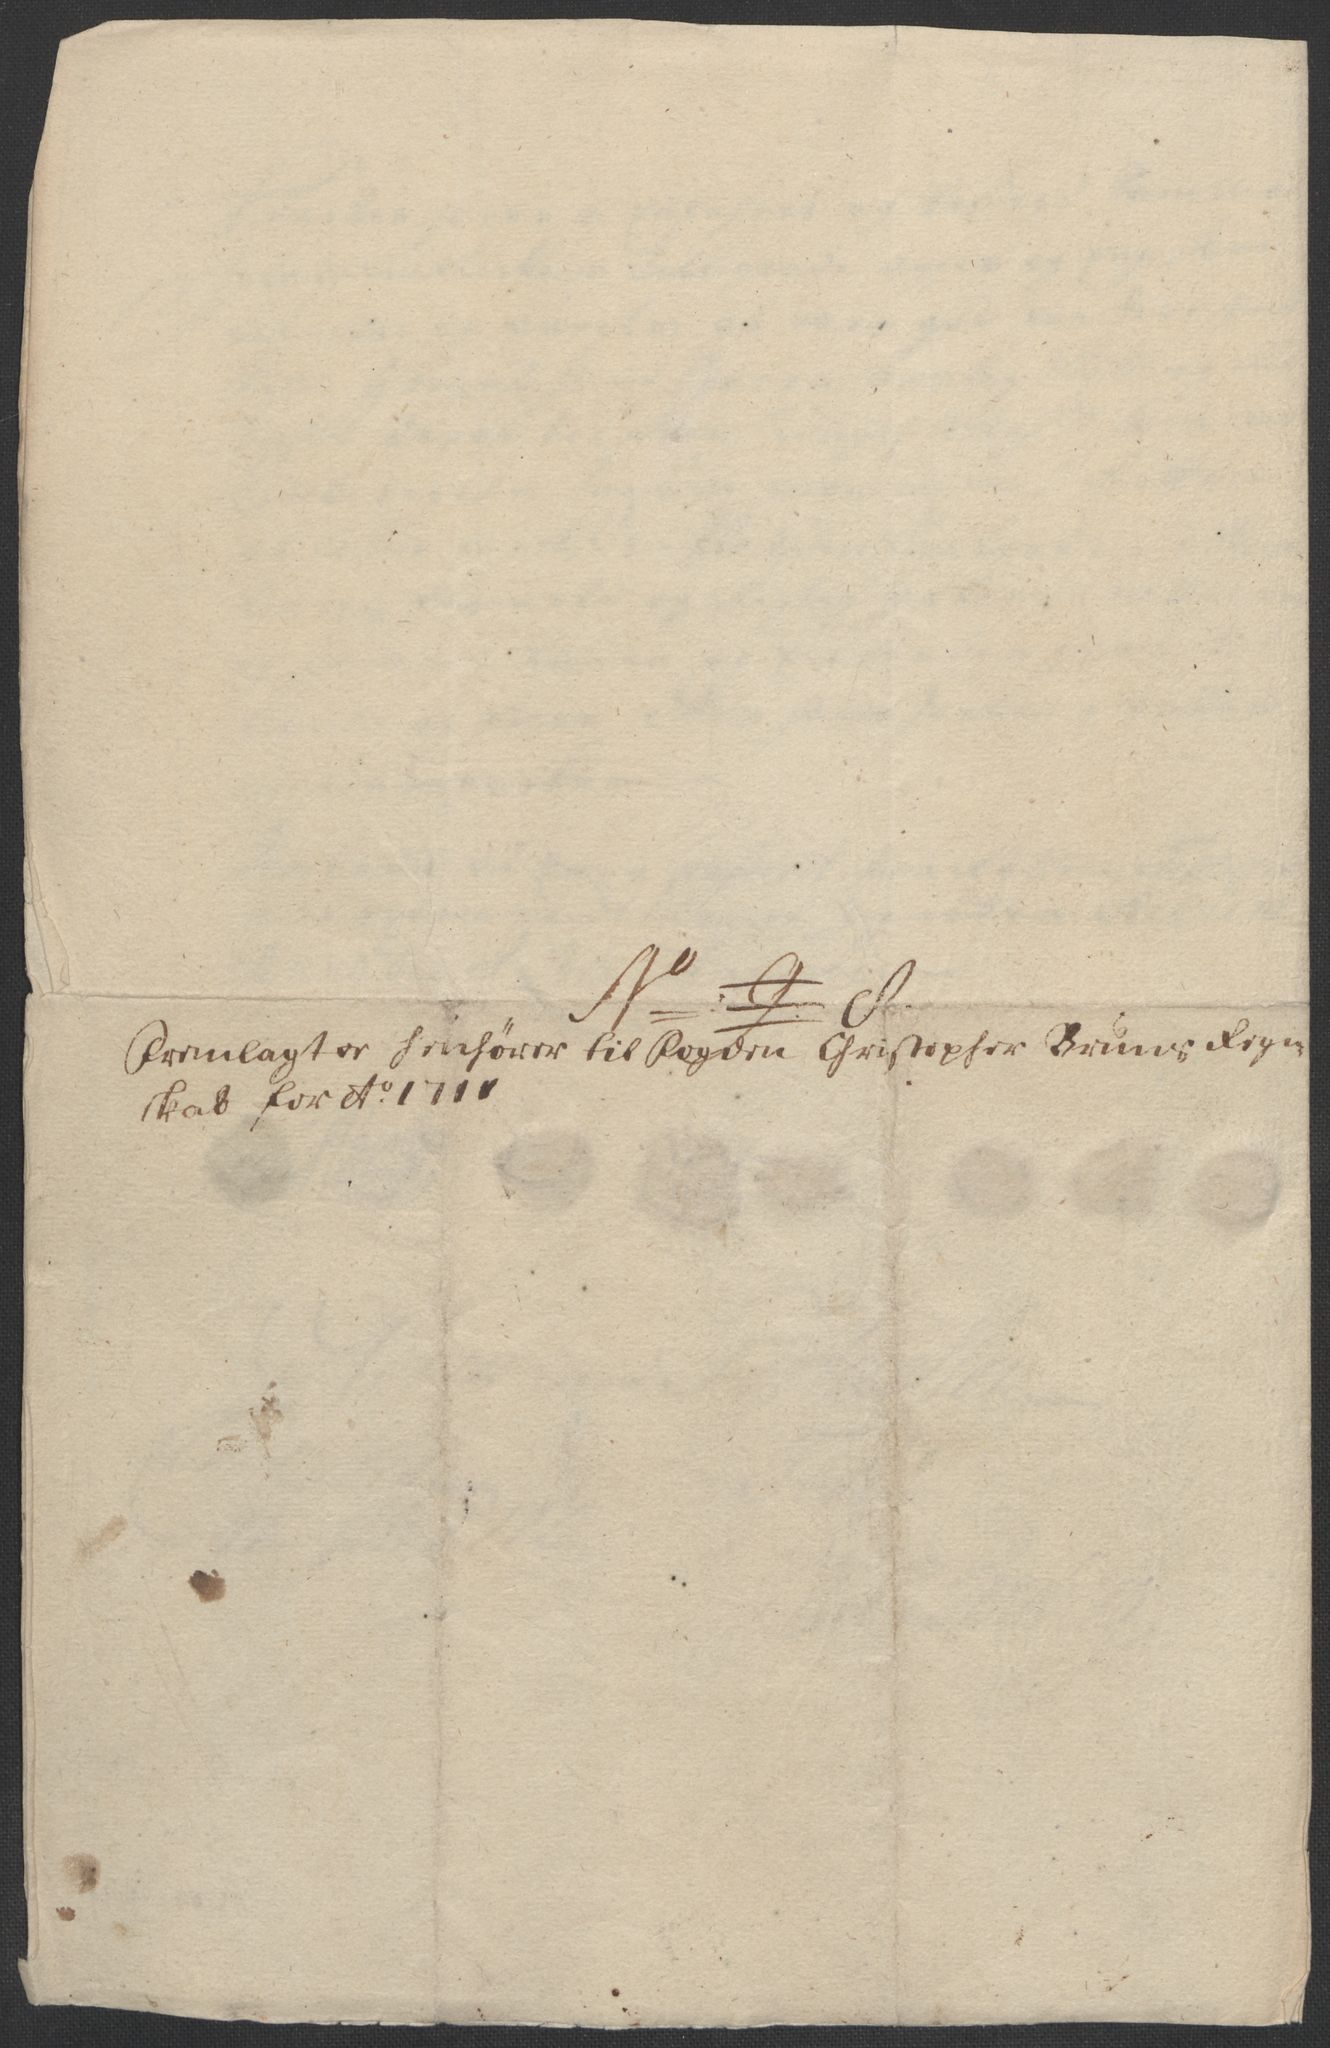 No 9 8.
Fremlagt og henhører til Fogden Christopher Bruuns Regn
skab for Ao: 1711